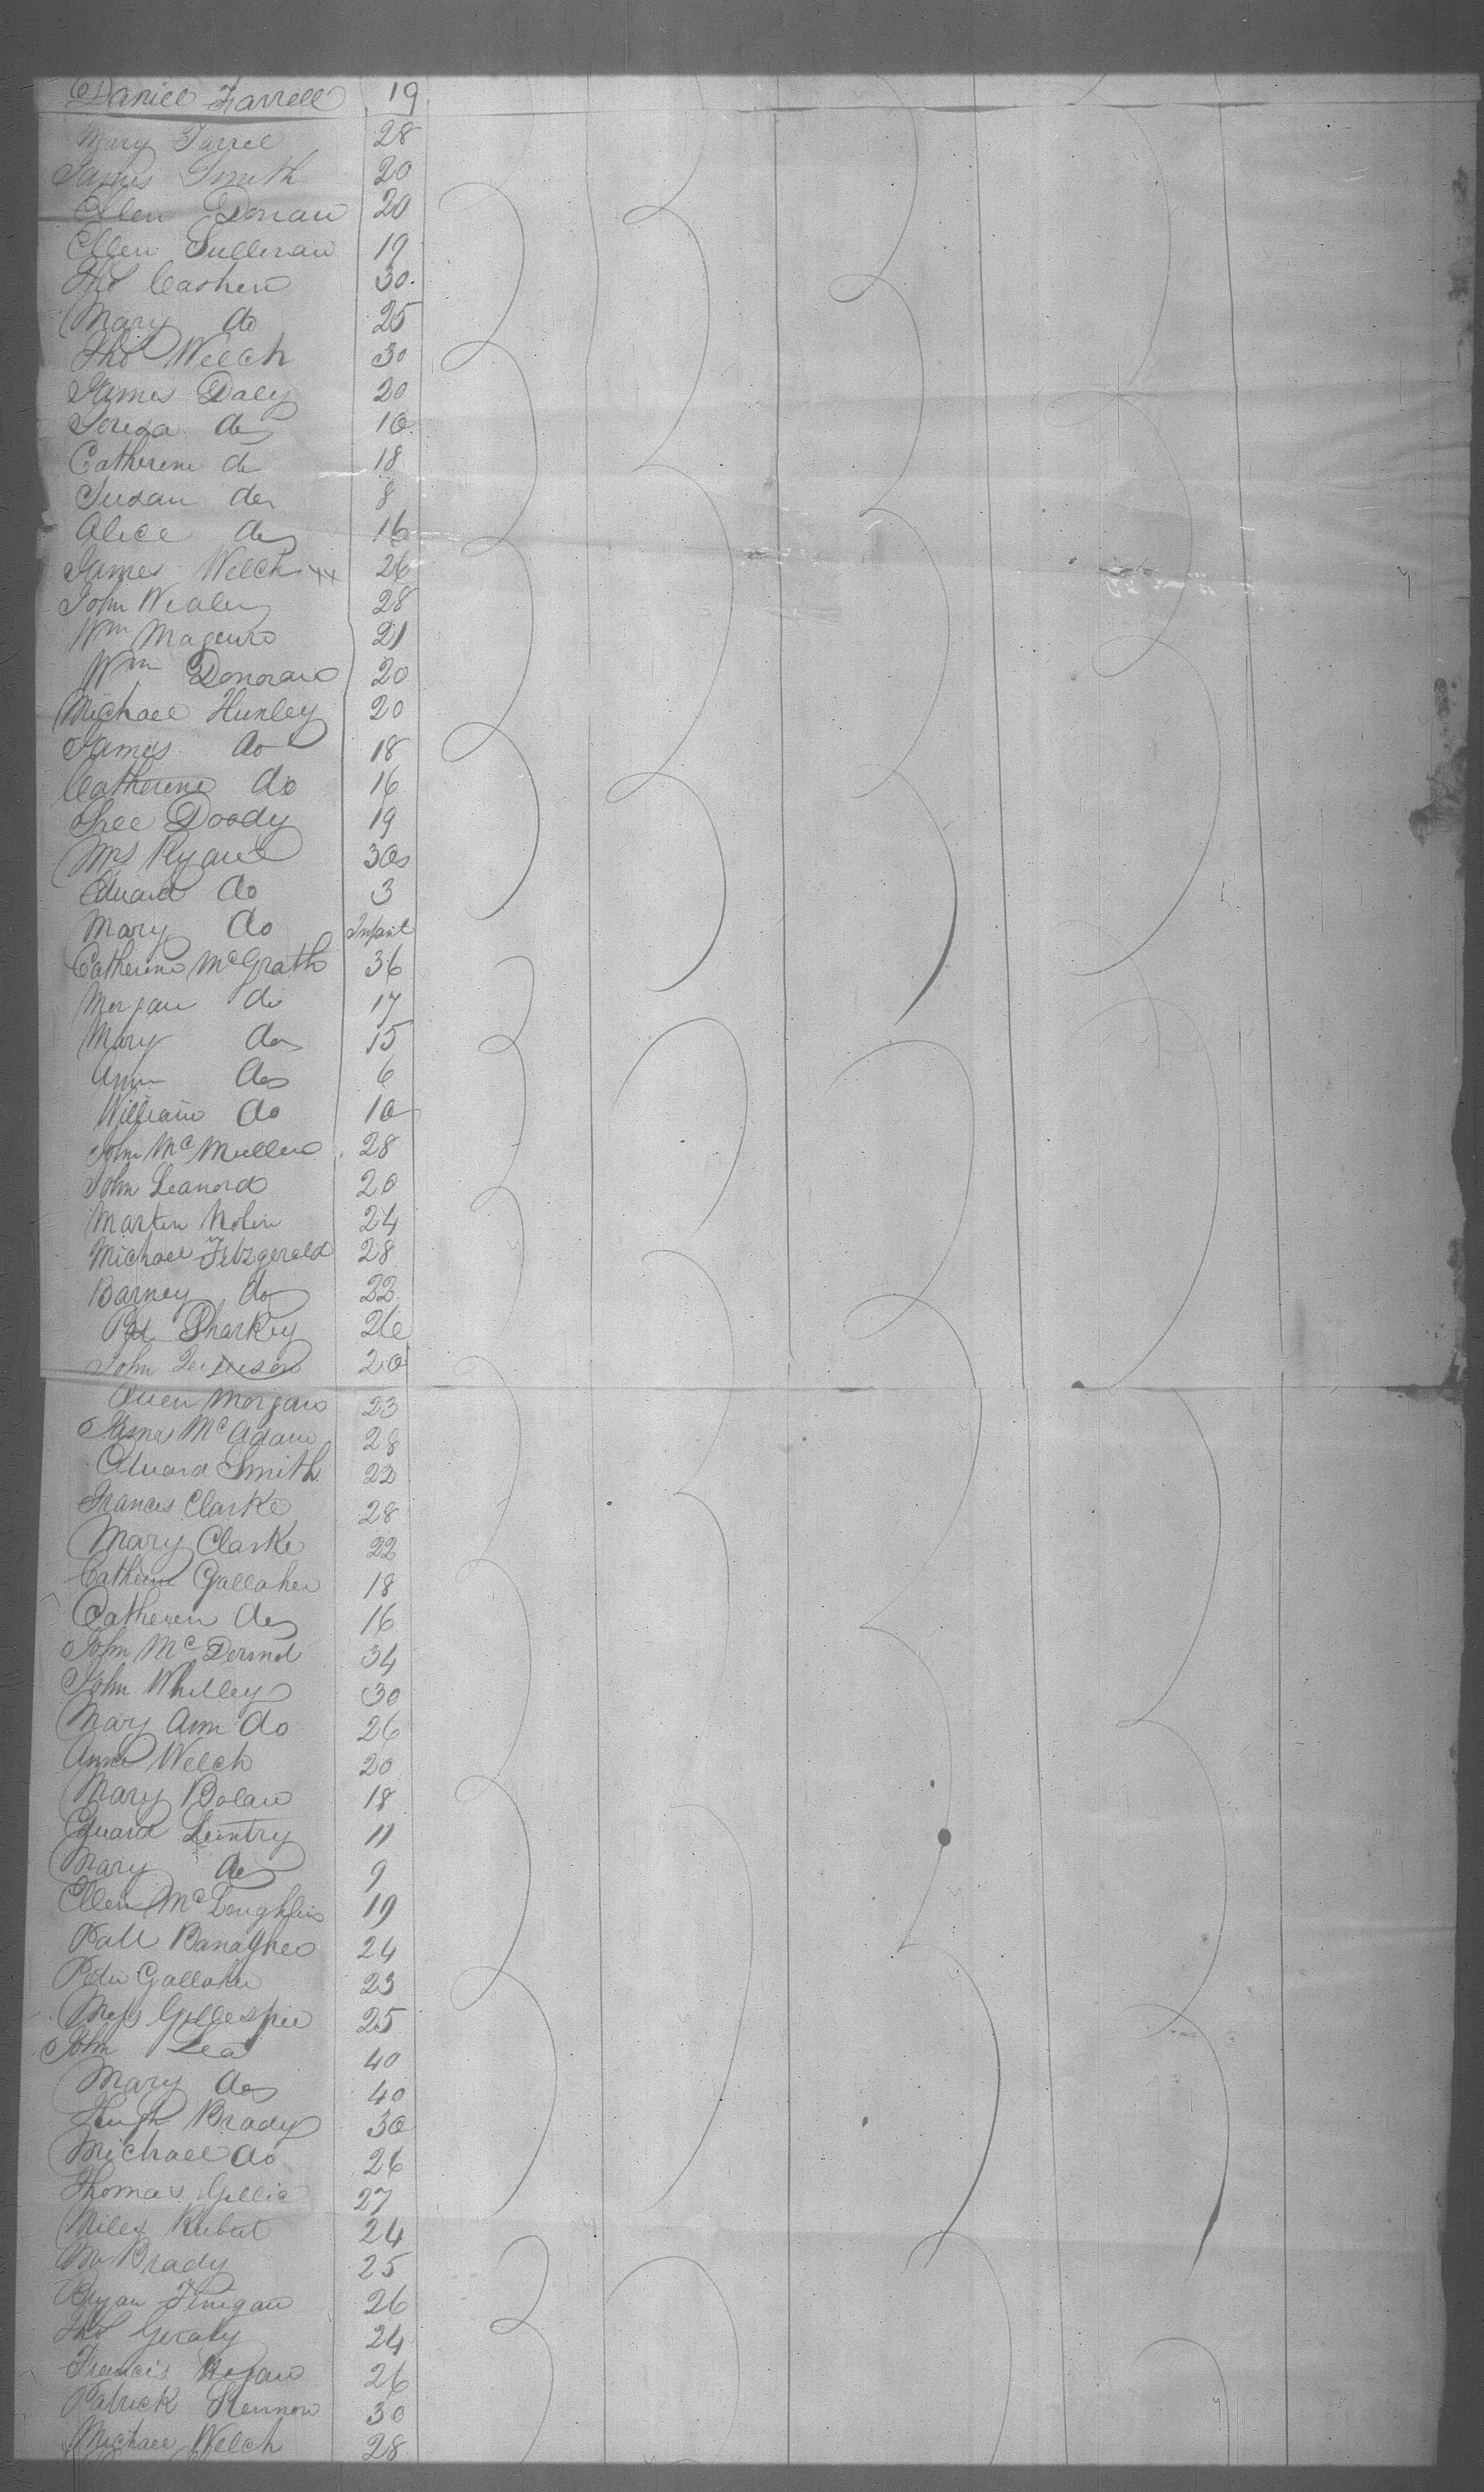 Daniel Farrell 19
Mary Farrel 28
James Smith 20
Ellen Donau 20
Ellen Sullivan 19
Thos Cashen 30
Mary do 25
Thos Welch 30
James Daly 20
Teresa do 10
Catherine do 18
Susan do 8
Alice do 16
James Welch 26
John Wealey 28
Wm Maguire 21
Wm Donovan 20
Michael Hurley 20
James do 18
Catherine do 16
Doody 19
Mrs Ryan 30
Edward do 3
Mary do Infant
Catherine McGrath 36
Morgan do 17
Mary do 15
Ann do 6
William do 10
John McMullen 28
John Leanord 20
Martin Nolin 24
Michael Fitzgerald 28
Barney do 22
Pat Sharkey 26
John 20
Owen Morgan 23
James McAdam 28
Edward Smith 22
Francis Clarke 28
Mary Clarke 22
Catherine Gallaher 18
Catheren do 16
John McDermot 34
John Whitley 30
Mary Ann do 26
Anne Welch 20
Mary Dolan 18
Edward Lentry 11
Mary do 9
Ellen McLoughlin 19
Patt 24
Peter Gallaher 23
Mrs Gillespie 25
John Lea 40
Mary do 40
Hugh Brady 30
Michael do 26
Thomas Gillic 27
Miles 24
Brady 25
Bryan Finigan 26
Thos Geraty 24
Francis 26
Patrick 30
Michael Welch 28